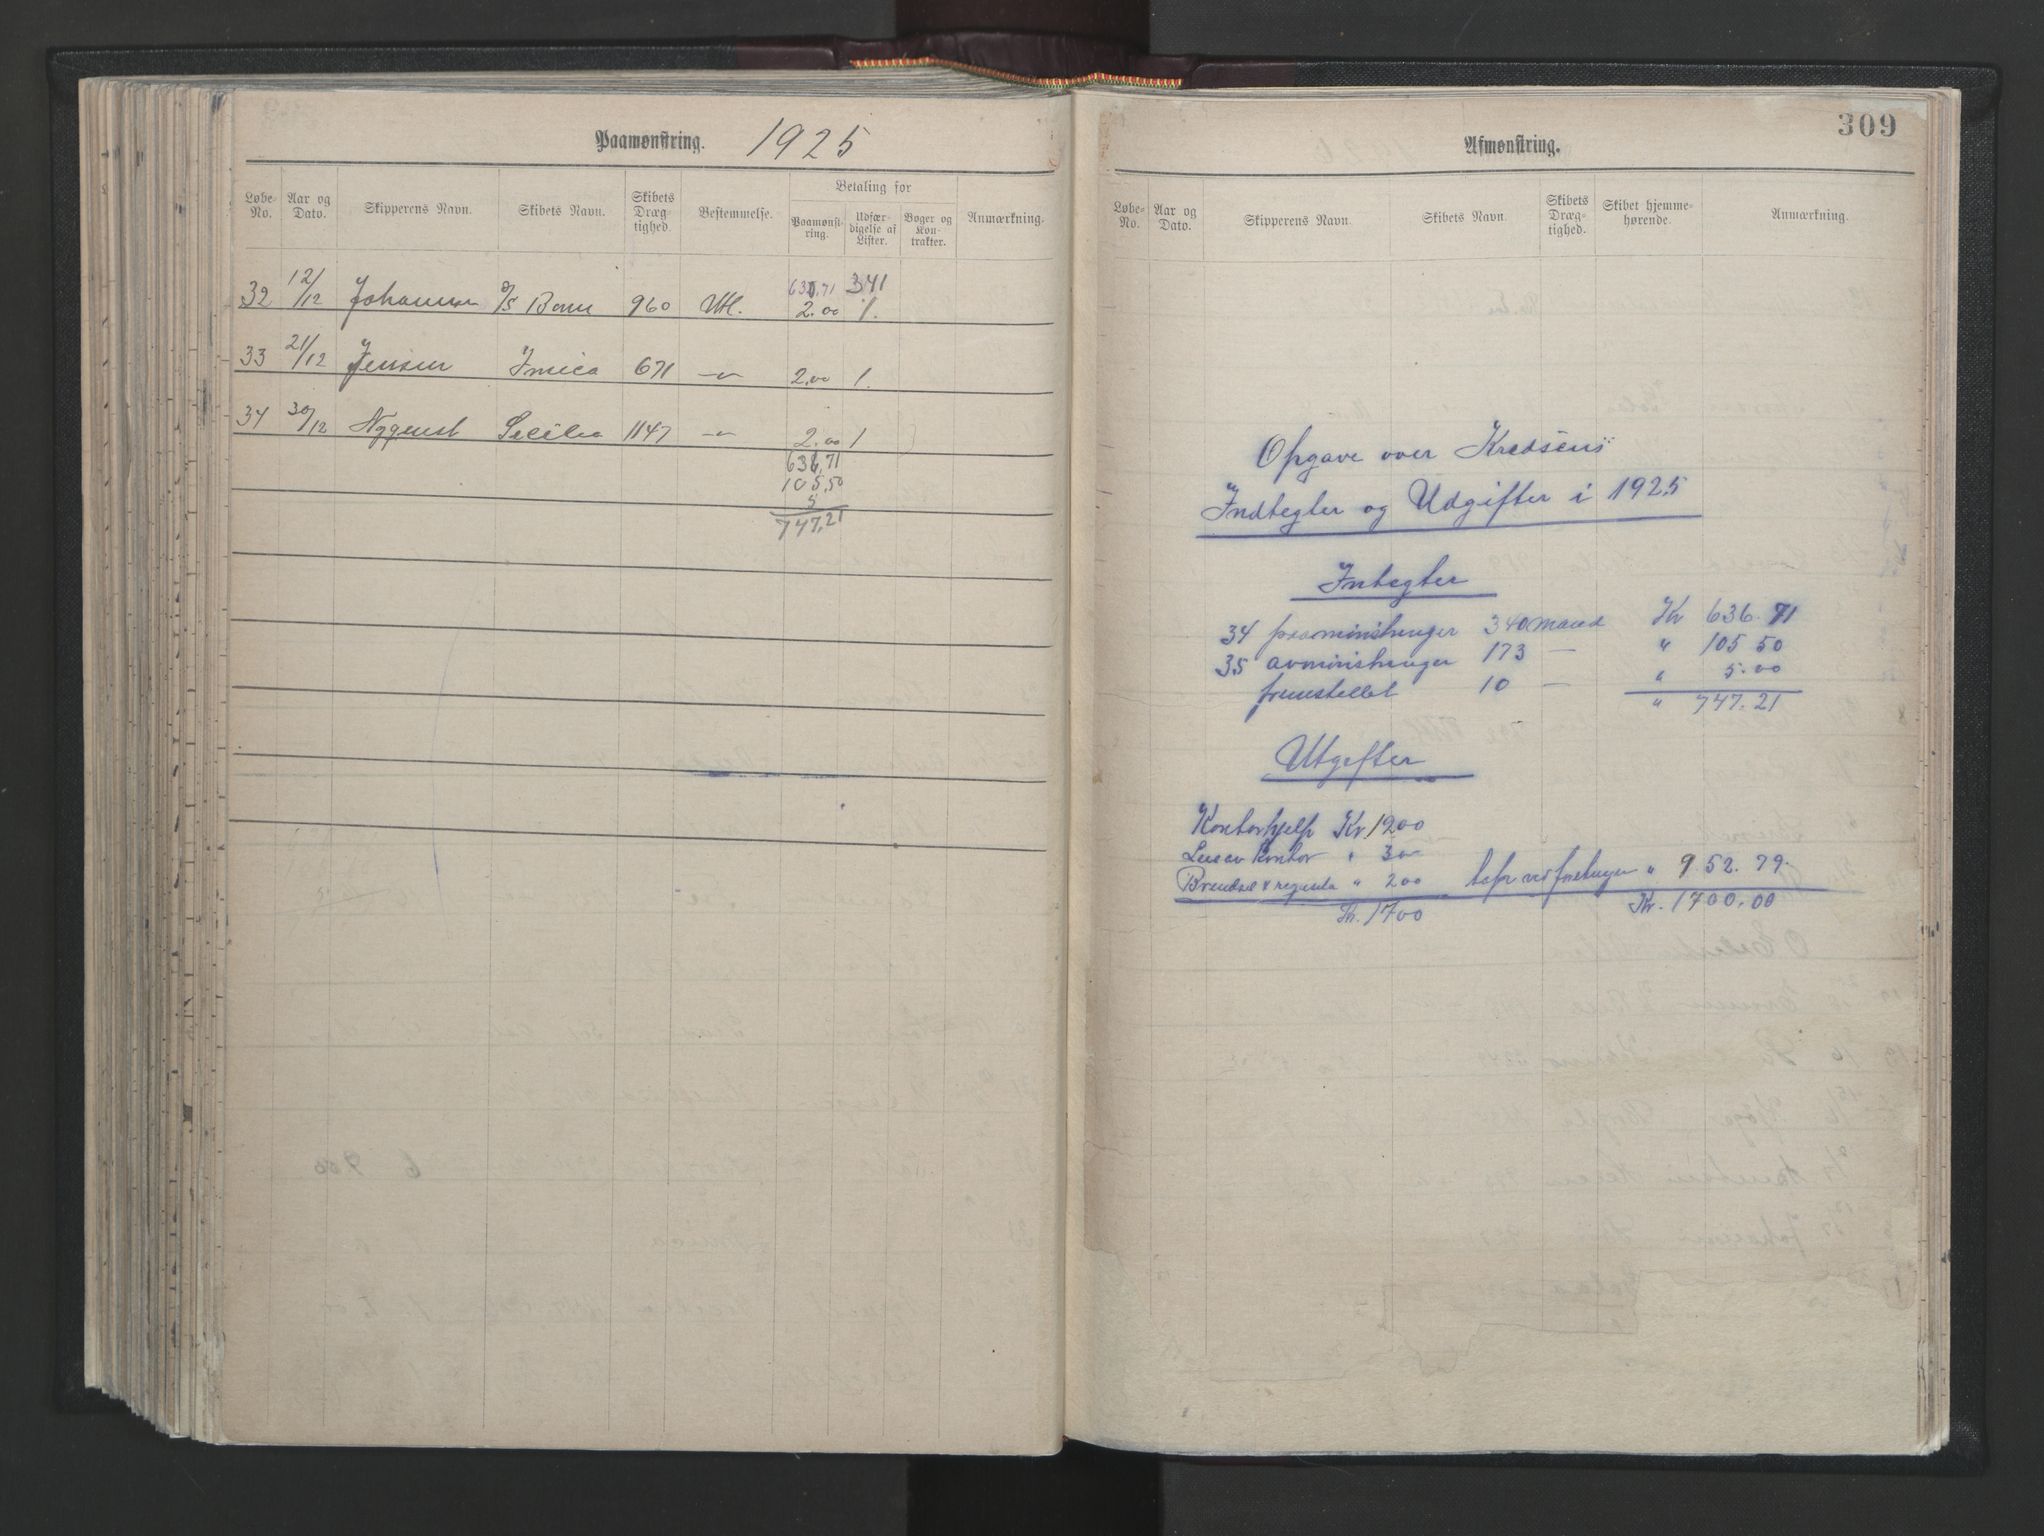 Paamønstring. 1925
Løbe-No. Aar og Dato. Skipperens Navn. Skibets Navn. Skibets Dræg-tighed. Bestemmelse. Betaling for Paamønst-ring. Udfær-digelse af Lister. Bøger og Kon-trakter. Anmærkning.
636,71 341
32 12/12 Johannsen D/S 960 Utl. 2.00 1.
33 21/12 Jensen Imica 671 -"- 2,00 1.
34 30/12 Secilia 1147 -"- 2.00 1
636,71
105,50
5
747,21
309
Afmønstring.
Løbe-No. Aar og Dato. Skipperens Navn. Skibets Navn. Skibets Dræg-tighed. Skibet hjemme-hørende. Anmærkning.
Opgave over Kredsens
Indtegter og Udgifter i 1925
Integter
34 paaminstringer 340 mand Kr 636.71
35 avminstringer 173 — " 105 50
fremstellet 10 — " 5.00
" 747.21
Utgifter
Kontorhjelp Kr. 1200
Leie av Kontor " 300
Brendsel & " 200 " 952.79
Kr. 1700 Kr. 1700.00